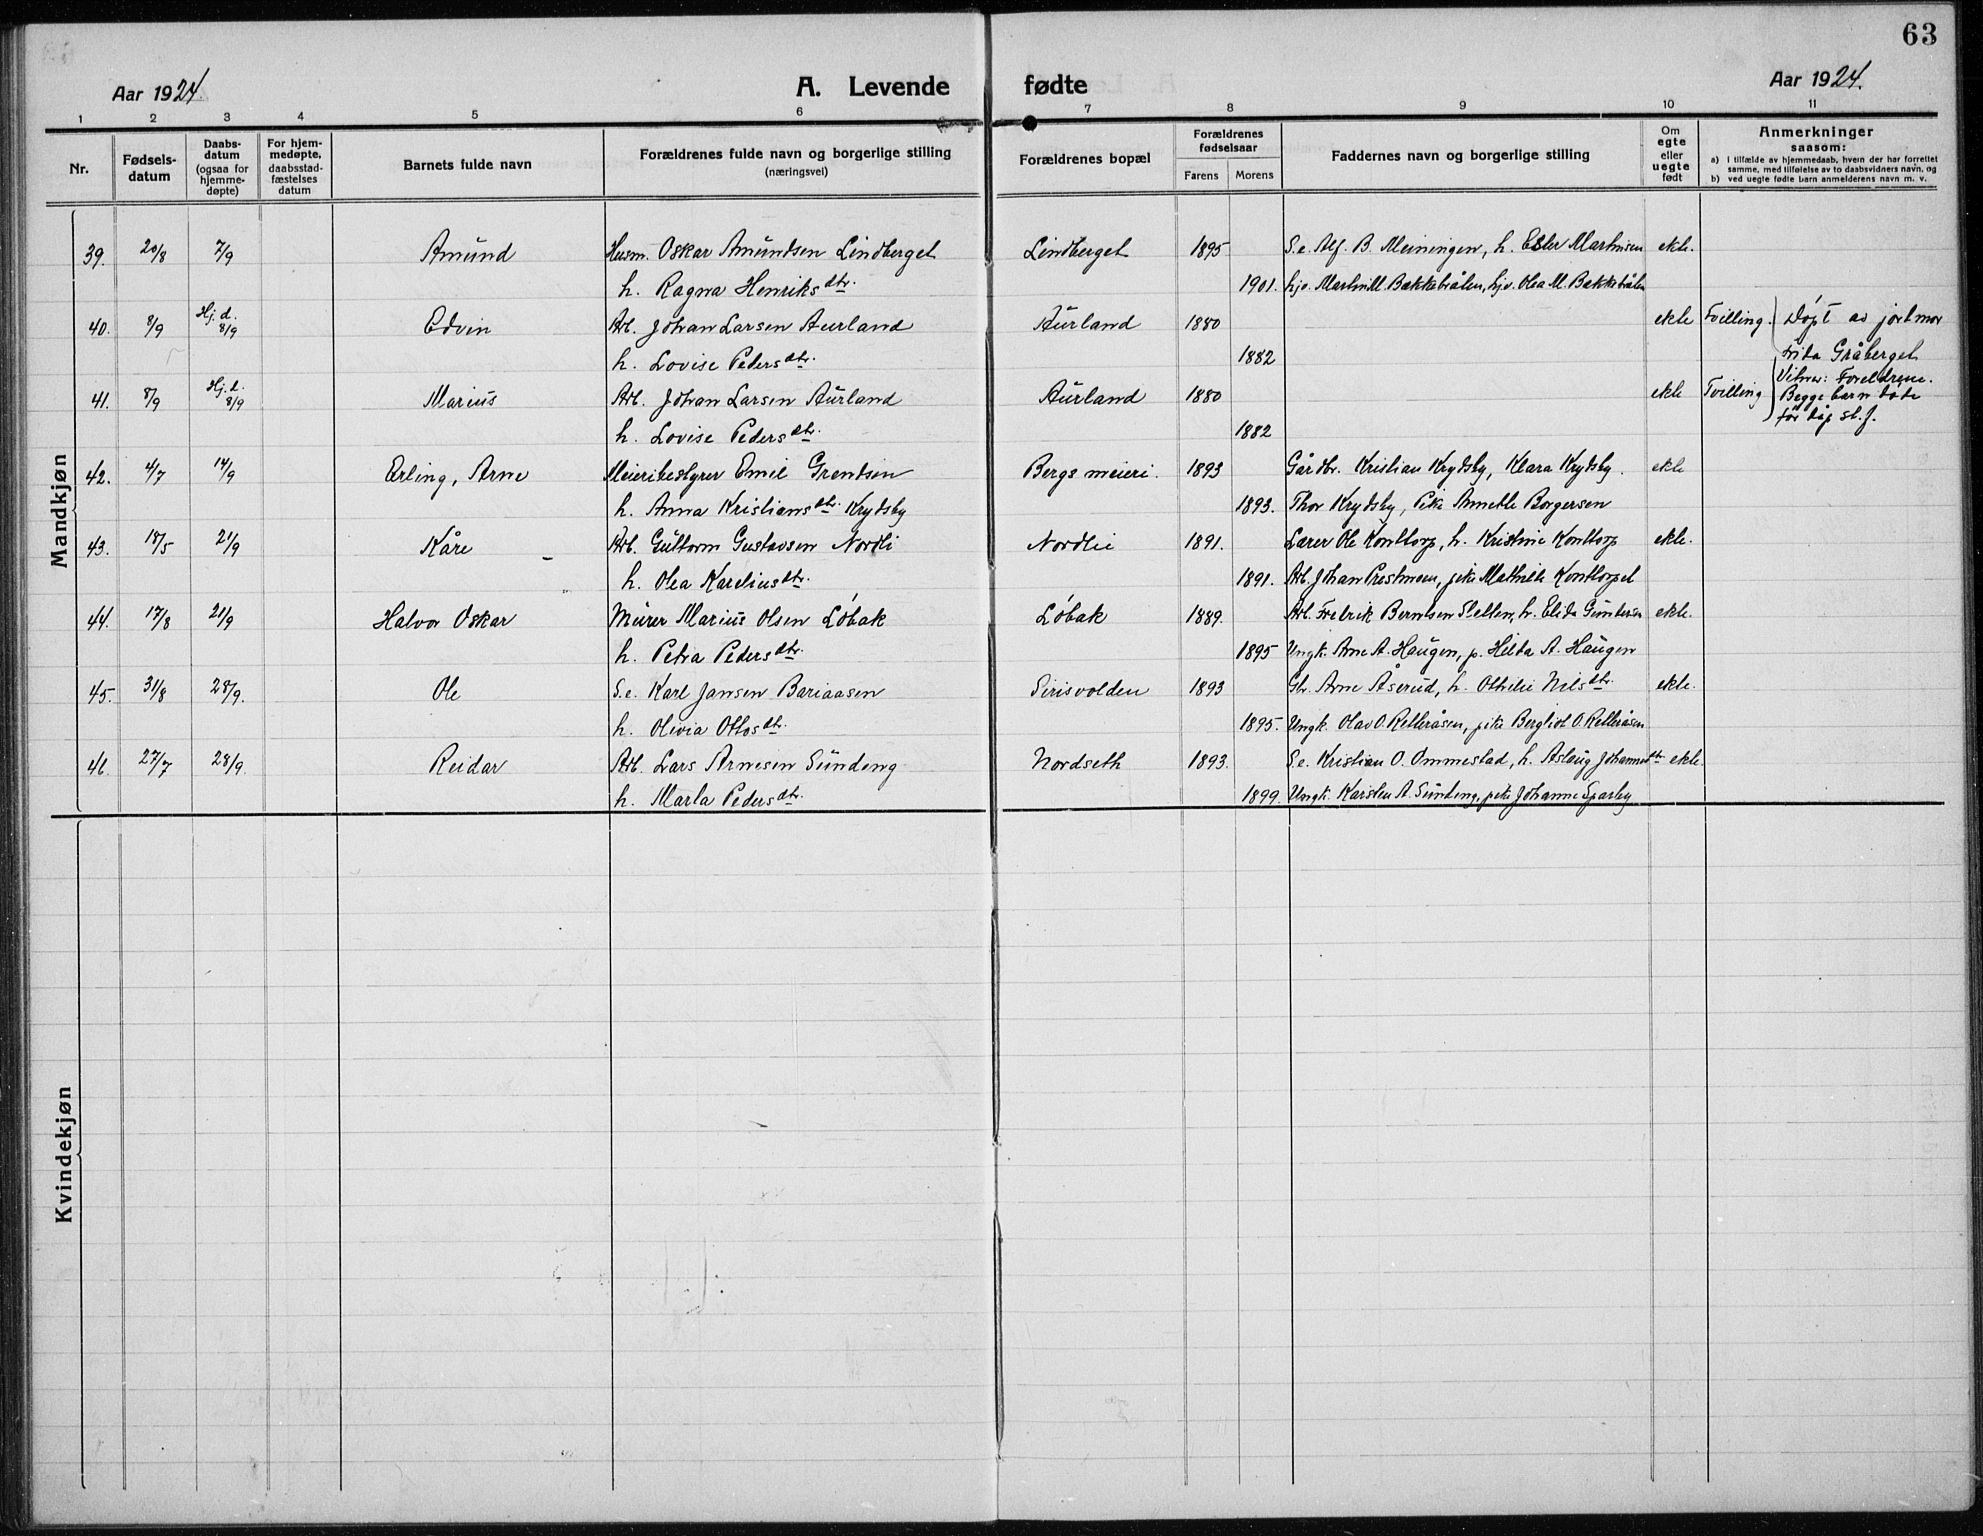 63
Aar 1924. A. Levende fødte Aar 1924.
1 2 3 4 5 6 7 8 9 10 11
Nr. Fødsels-datum Daabs-datum (ogsaa for hjemme-døpte) For hjem-medøpte, daabsstad-fæstelses datum Barnets fulde navn Forældrenes fulde navn og borgerlige stilling (næringsvei) Forældrenes bopæl Forældrenes fødselsaar Farens Morens Faddernes navn og borgerlige stilling Om egte eller uegte født Anmerkninger saasom: a) I tilfælde av hjemmedaab, hvem der har forrettet samme, med tilføielse av to daabsvidners navn, og b) ved uegte fødte barn anmelderens navn m. v.
Mandkjøn
39. 20/8 7/9 Amund Husm. Oskar Amundsen Lindberget Lindberget 1895 S.e. Alf. B. Meiningen, h. Ester Martinsen ekte.
h. Ragna Henriksdtr. 1901. hjv. Martin M. Bakkebråten, hjv. Olea M. Bakkebråten
40. 8/9 Hj. d. 8/9 Edvin Arb. Johan Larsen Aurland Aurland 1880 ekte Tvilling. Døpt av jortmor
h. Lovise Pedersdtr. 1882 Frida Gråberget
Vitner: Foreldrene.
41. 8/9 Hj. d. 8/9 Marius Arb. Johan Larsen Aurland Aurland 1880 ekte Tvilling Begge barn døde
før dåp st. f.
h. Lovise Pedersdtr. 1882
42. 4/7 14/9 Erling, Arne Meieribestyrer Emil Grendsen Bergs meieri. 1893 Gårdbr. Kristian Krydsby, Klara Krydsby. ekte
h. Anna Kristiansdtr. Krydsby 1893. Thor Krydsby, Pike Annette Borgersen
43. 18/5 21/9 Kåre Arb. Guttorm Gustavsen Nordli Nordlie 1891. Lærer Ole Konttorp, h. Kristine Konttorp ekte.
h. Olea Kareliusdtr. 1891. Arb. Johan Prestmoen, pike Mathilde Konttorpet
44. 17/8 21/9 Halvor Oskar Murer Marius Olsen Løbak Løbak 1889. Arb. Fredrik Berntsen Sletten, h. Elida Gundersen ekte.
h. Petra Pedersdtr. 1895 Ungk. Arne A. Haugen, p. Hilda A. Haugen
45. 31/8 28/9. Ole S.e. Karl Jansen Bariaasen Sirisvolden 1893 Gbr. Arne Åserud, h. Othilie Nilsdtr. ekte.
h. Olivia Ottosdtr. 1895. Ungk. Olav O. Retteråsen, pike Bergliot O. Retteråsen
46. 27/7 28/9. Reidar Arb. Lars Arnesen Sundeng Nordseth 1893. S.e. Kristian O. Ommestad, h. Aslaug Johannesdtr ekte.
h. Marta Pedersdtr. 1899. Ungk. Karsten A. Sundeng, pike Johanne Sparby
Kvindekjøn